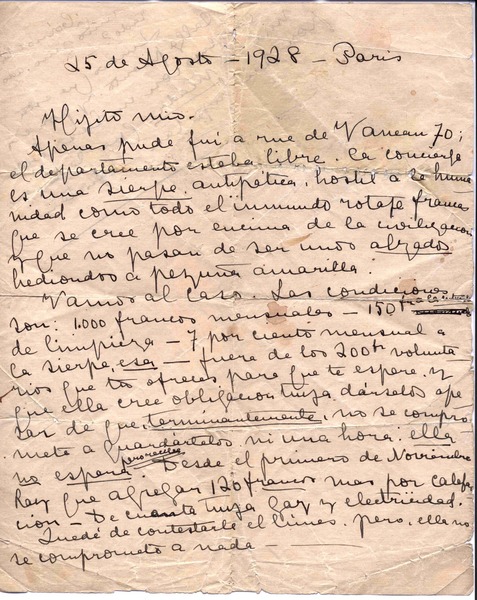 25 de Agosto - 1928 - Paris
Hijito mio.
Apenas pude fui a rue de Vaneau 70;
el departamento estaba libre. La concierge
es una sierpe, antipática, hostil a la huma
nidad como todo el inmundo rotaje frances
que se cree por encima de la civilizacion
y que no pasan de ser unos alzados
hediondos a pezuña amarilla.
Vamos al caso. Las condiciones
son: 1.000 francos mensuales - 150 fr
de limpieza - 7 por ciento mensual a
la sierpe, esa - fuera de los 200 fr volunta
rios que tu ofreces para que te espere, y
que ella cree obligacion tuya dárselos ape
sar de que, terminantemente, no se compro
mete a guardártelos ni una hora: ella
no espera. Desde el primero de Noviembre
hay que agregar 120 francos mas por calefac
cion - De cuenta tuya gaz y electricidad.
Quedé de contestarle el lunes, pero, ella no
se compromete a nada -